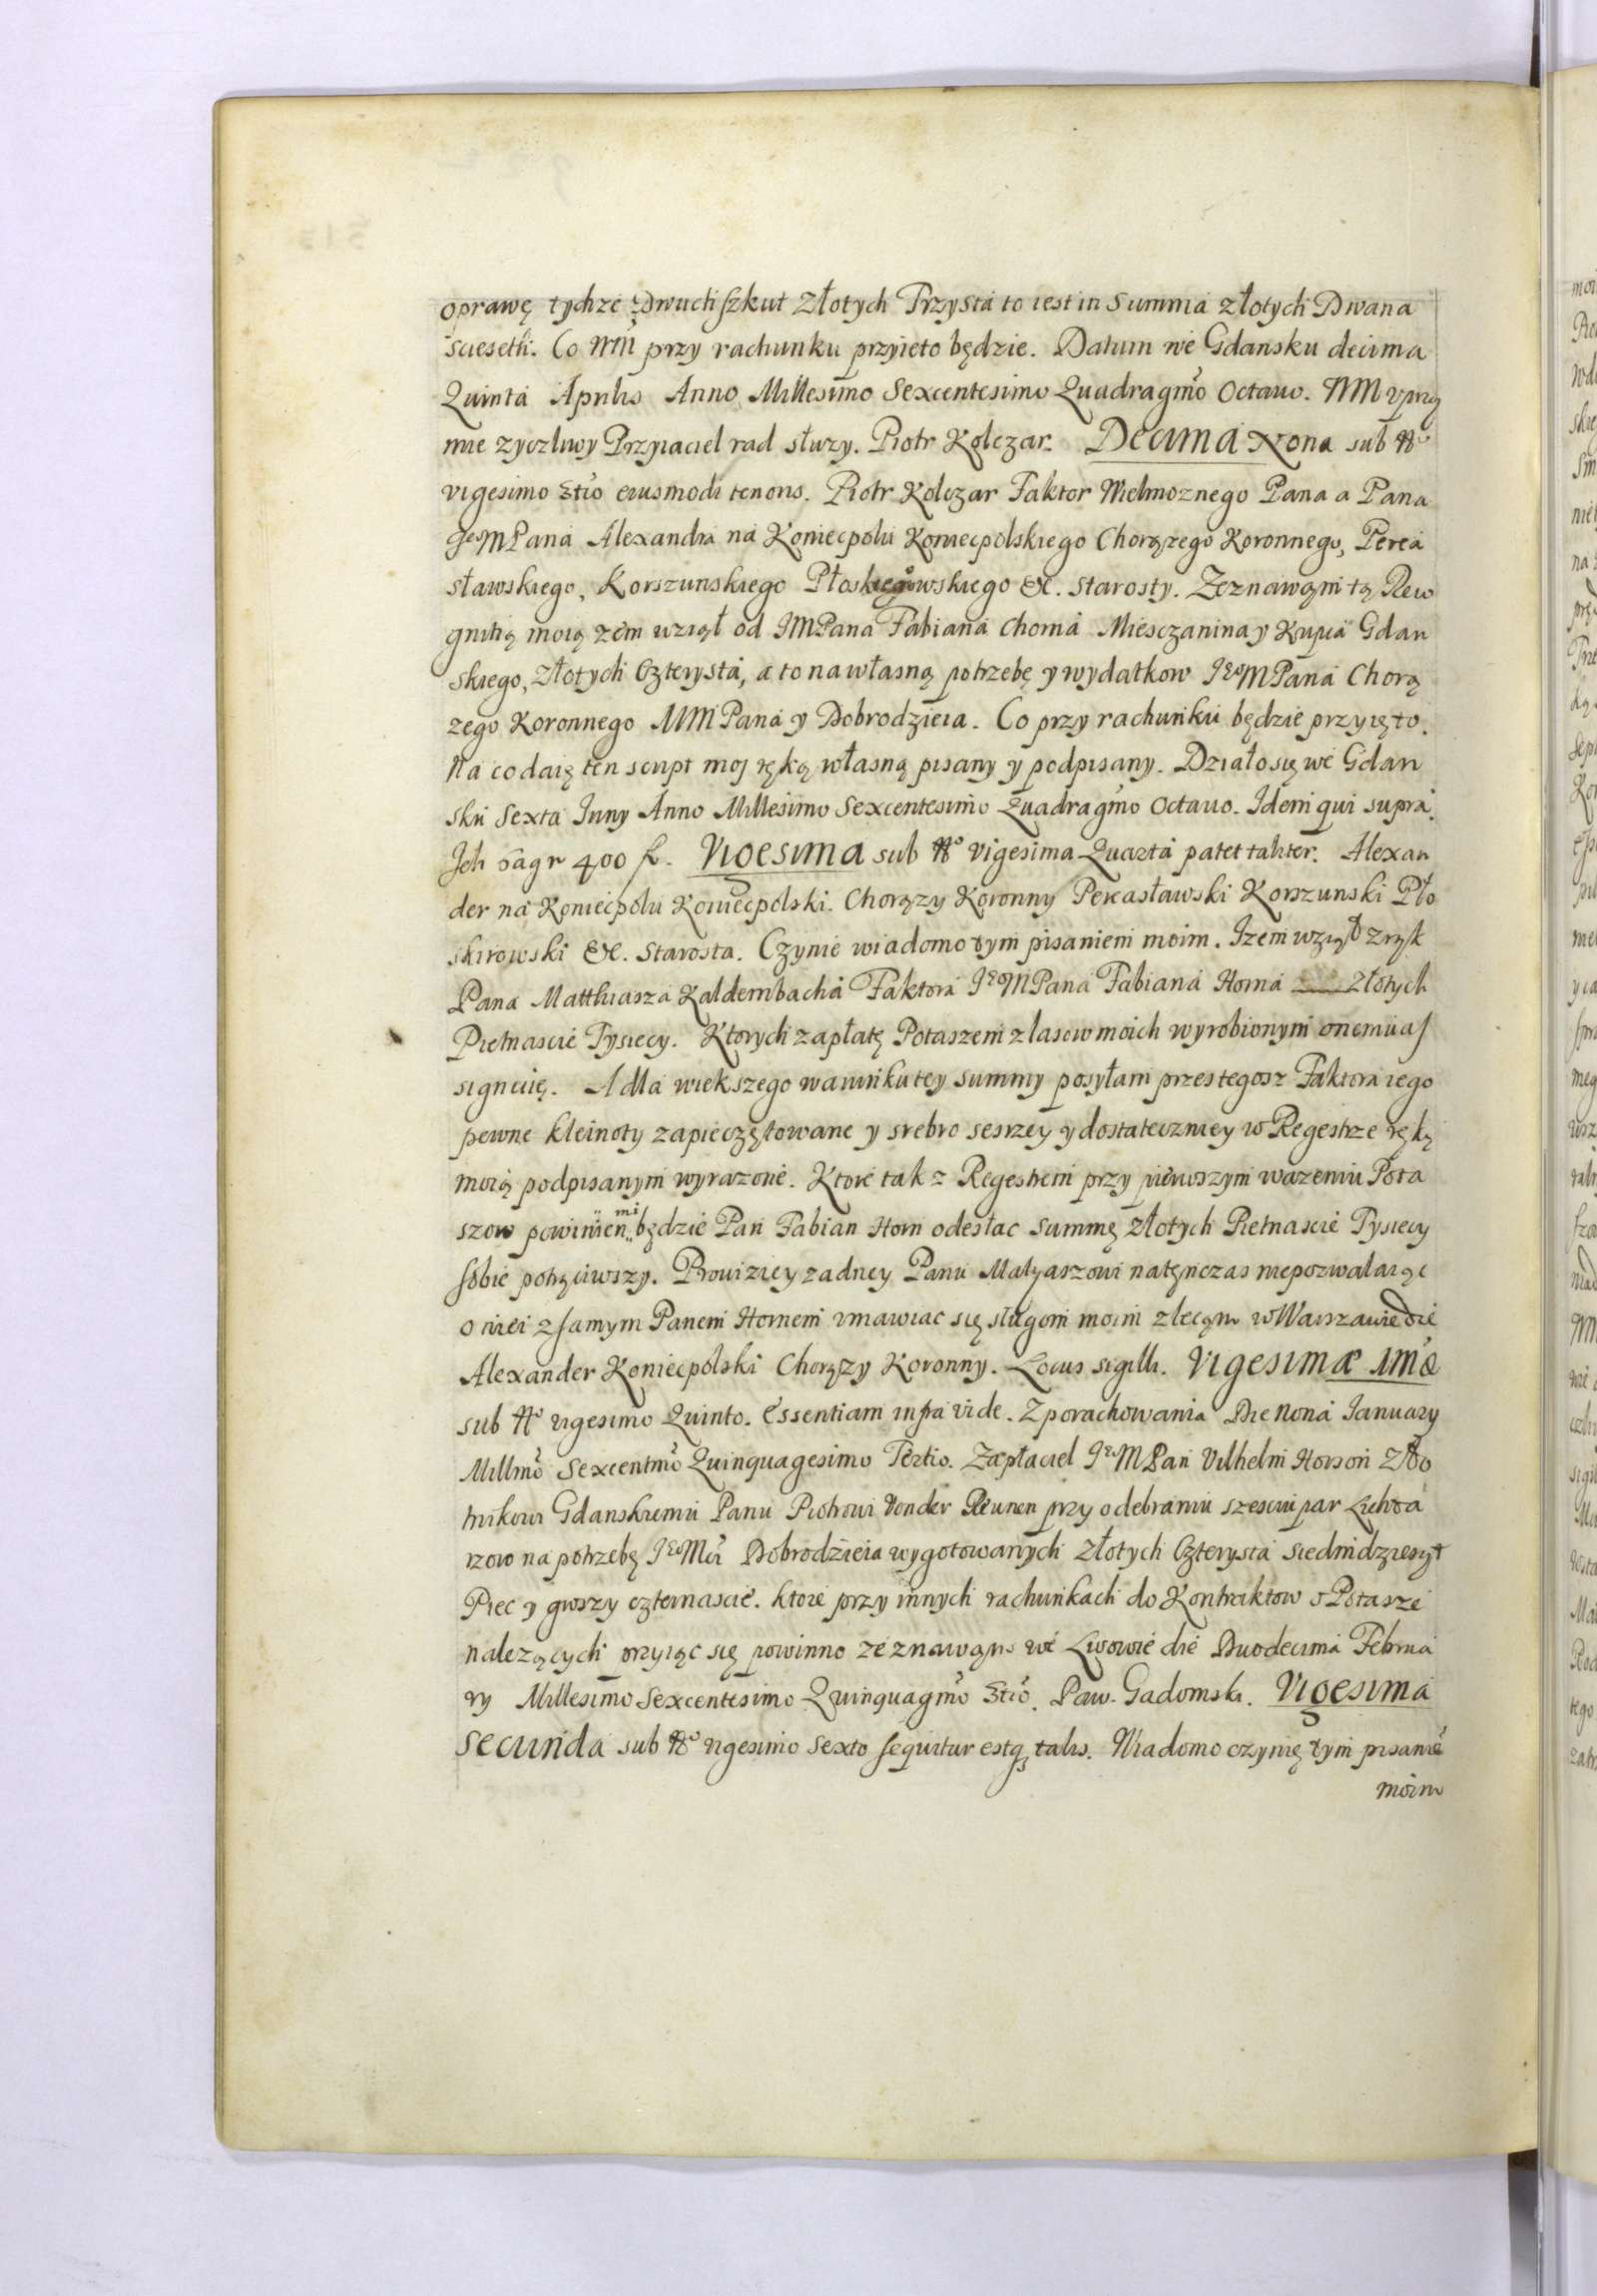 oprawę tychze Dwuch szkut Złotych Trzysta to iest in Summa złotych Dwana
scieseth. Co WM przy rachunku przyieto będzie. Datum we Gdansku decima
Quinta Aprilis Anno Millesimo Sexcentesimo Quadragmo Octauo. WM vprzy
mie zyczliwy Przyiaciel rad słuzy. Piotr Kolczar. Decima Nona sub No
vigesimo 3tio eiusmodi tenoris. Piotr Kolczar Faktor Wielmoznego Pana a Pana
JeoMPana Alexandra na Koniecpolu Koniecpolskiego Chorązego Koronnego, Perea
sławskiego, Korszunskiego Płoskirowskiego &c. Starosty. Zeznawam tą Reco
gnitią moią zem wziął od JMPana Fabiana Chorna Miesczanina y Kupca Gdan
skiego, Złotych Czterysta, a to na własną potrzebę y wydatkow JeoMPana Chorą
zego Koronnego MMPana y Dobrodzieia. Co przy rachunku będzie przyięto.
Na co daię ten script moj ręką własną pisany y podpisany. Działo się we Gdan
sku Sexta Juny Anno Millesimo Sexcentesimo Quadragmo Octauo. Idem qui supra.
Jch 400 fl. Vigesima sub No vigesima Quarta patet taliter. Alexan
der na Koniecpolu Koniecpolski. Chorązy Koronny Pereasławski Korszunski Pło
skirowski &c. Starosta. Czynie wiadomo tym pisaniem moim. Izem wziął z rąk
Pana Matthiasza Kaldembacha Faktora JeoMPana Fabiana Horna Złotych
Pietnascie Tysiecy. Ktorych zapłatę Potaszem z lasow moich wyrobionym onemu as
signuię. A dla wiekszego warunku tey summy posyłam przes tegosz Faktora iego
pewne kleinoty zapieczętowane y srebro sesrzey y dostateczniey w Regestrze ręką
moią podpisanym wyrazone. Ktore tak z Regestrem przy pierwszym wazeniu Pota
szow powinien mi będzie Pan Fabian Horn odesłac Summę złotych Pietnascie Tysiecy
sobie potrąciwszy. Prouiziey zadney Panu Matyaszowi natenczas niepozwalaiąc
o niei z samym Panem Hornem vmawiac się sługom moim zlecam w Warszawie die
Alexander Koniecpolski Chorązy Koronny. Locus sigilli. Vigesimæ 1mæ
sub No vigesimo Quinto. Essentiam infra vide. Z porachowania Die Nona January
Millmo Sexcentmo Quinquagesimo Tertio. Zapłaciel JeMPan Vilhelm Horson Zło
tnikowi Gdanskiemu Panu Piotrowi Vonder Reunen przy odebraniu szesciu par Lichta
rzow na potrzebę JeoMci Dobrodzieia wygotowanych Złotych Czterysta siedmdziesiąt
Piec y groszy czternascie. ktore przy innych rachunkach do Kontraktow o Potasze
nalezących przyiąc się powinno zeznawam we Lwowie die Duodecima Februa
ry Millesimo Sexcentesimo Quinquagmo 3tio. Paw. Gadomski. Vigesima
Secunda sub No vigesimo Sexto sequitur estq talis. Wiadomo czynię tym pisanie
moim